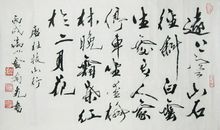 遠上寒山石
徑斜白雲
生處有人家
停車坐愛楓
林晚霜葉紅
於二月花
唐杜牧山行
丙戌